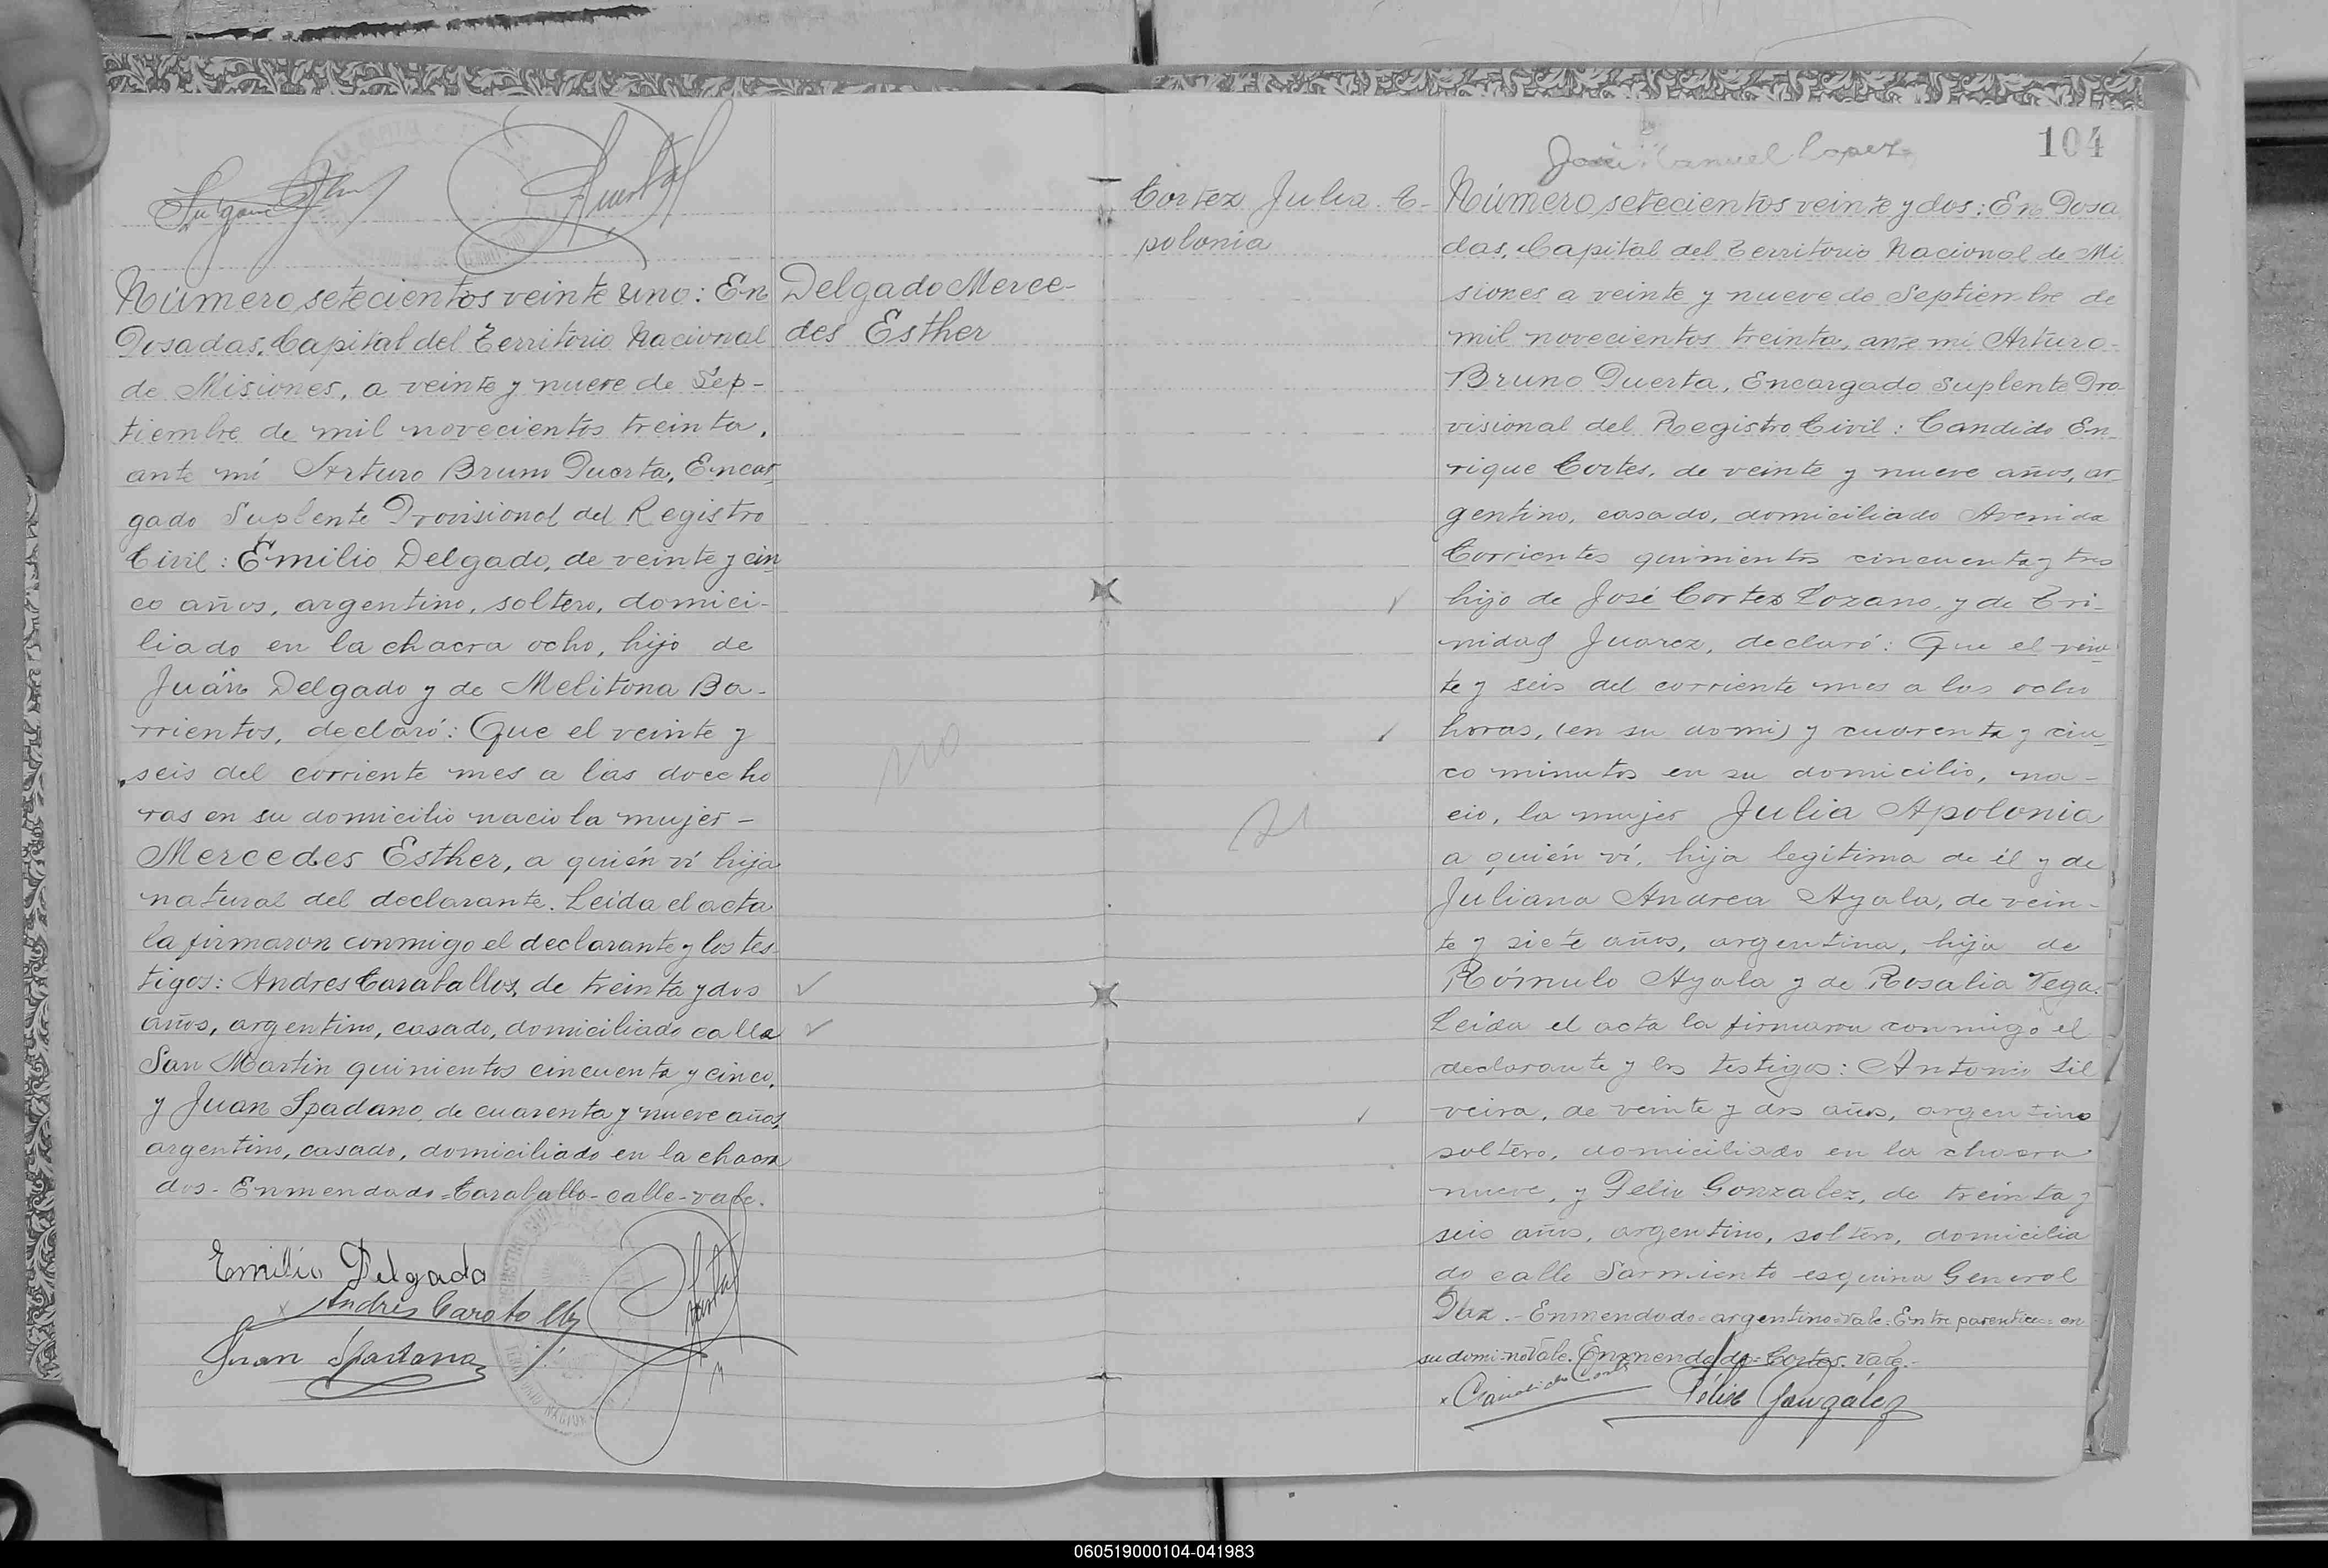 Delgado Merce-
des Esther
Número setecientos veinte uno: En
Posadas, Capital del Territorio Nacional
de Misiones, a veinte y nueve de Sep-
tiembre de mil novecientos treinta,
ante mí Arturo Bruno Puerta, Encar
gado Suplente Provisional del Registro
Civil: Emilio Delgado, de veinte y cin
co años, argentino, soltero, domici-
liado en la chacra ocho, hijo de
Juan Delgado y de Melitona Ba-
rrientos, declaró: Que el veinte y
seis del corriente mes a las doce ho
ras en su domicilio nació la mujer -
Mercedes Esther, a quién ví hija
natural del declarante. Leída el acta
la firmaron conmigo el declarante y los tes-
tigos: Andres Caraballos, de treinta y dos
años, argentino, casado, domiciliado calle
San Martin quinientos cincuenta y cinco,
y Juan Spadano, de cuarenta y nueve años,
argentino, casado, domiciliado en la chacra
dos- Enmendado=Caraballo-calle-vale.
Emilio Delgado
Andrés Caraballo
Juan Spadano
104
José Manuel Lopez
Cortez Julia A-
polonia
Número setecientos veinte y dos: En Posa
das, Capital del Territorio Nacional de Mi
siones a veinte y nueve de Septiembre de
mil novecientos treinta, ante mi Arturo
Bruno Puerta, Encargado Suplente Pro
visional del Registro Civil: Candido En
rique Cortes, de veinte y nueve años, ar
gentino, casado, domiciliado Avenida
Corrientes quinientos cincuenta y tres
hijo de José Cortes Lozano, y de Tri-
nidad Juarez, declaró: Que el vein
te y seis del corriente mes a las ocho
horas, (en su domi) y cuarenta y cin
co minutos en su domicilio, na-
cio, la mujer Julia Apolonia
a quién ví, hija legítima de él y de
Juliana Andrea Ayala, de vein-
te y siete años, argentina, hija de
Rómulo Ayala y de Rosalia Vega.
Leída el acta la firmaron conmigo el
declarante y los testigos: Antonio Sil
veira, de veinte y dos años, argentino
soltero, domiciliado en la chacra
nueve, y Felix Gonzalez, de treinta y
seis años, argentino, soltero, domicilia
do calle Sarmiento esquina General
Paz.-Enmendado=argentino=Vale=Entre parentesis= en
su domi-no Vale. Enmendado=Cortes. Vale.-
Candido Cortes Félix González
060519000104-041983